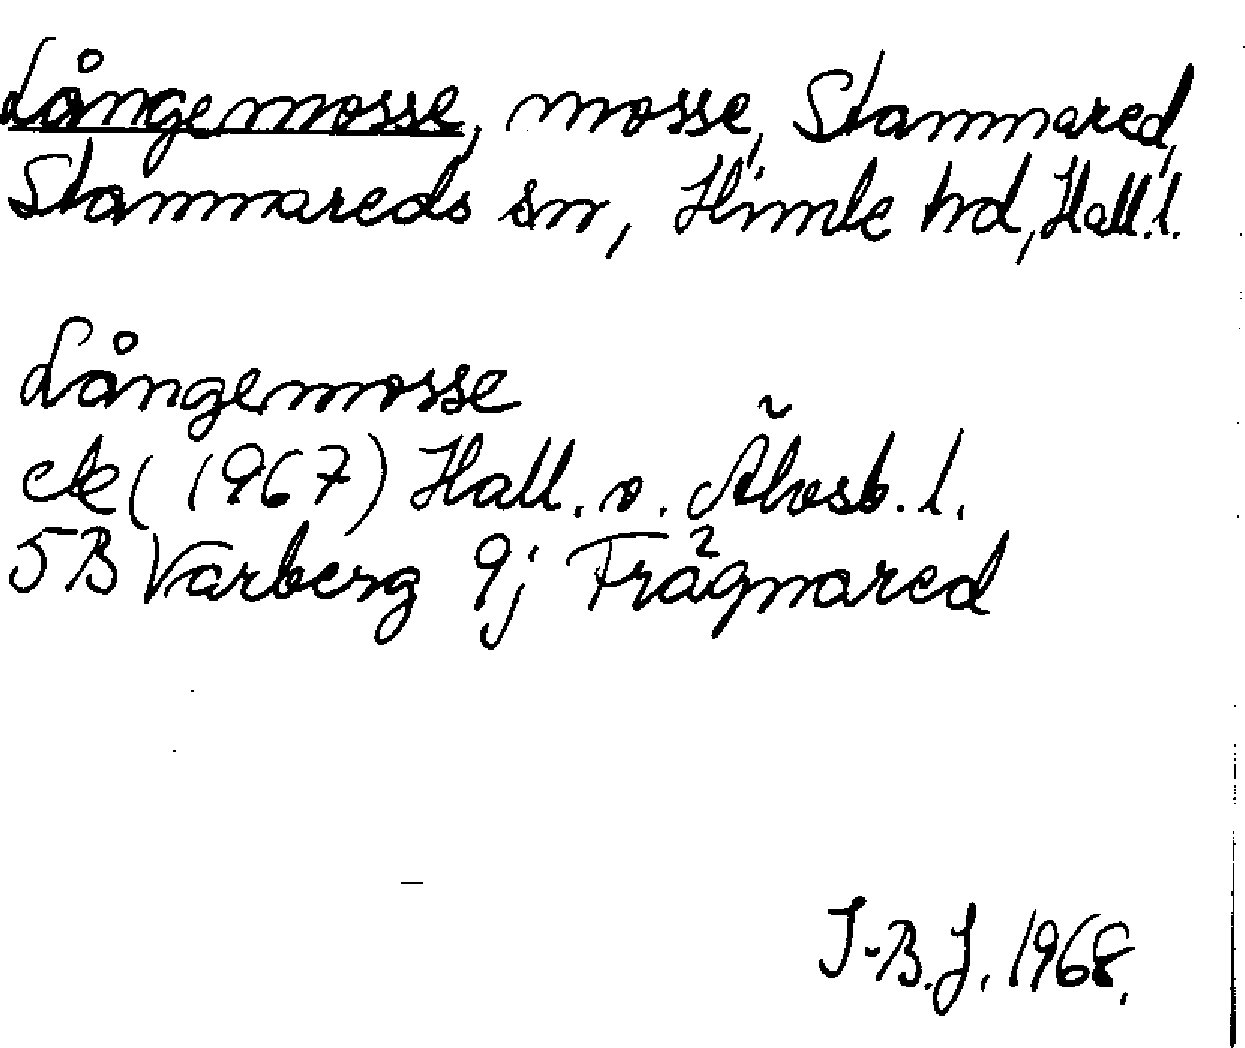 Långemosse, mosse, Stammared,
Stammareds sn, Himle hd, Hall.l.
Långemosse
ek (1967) Hall. o. Älvsb. l.
5B Varberg 9j Frågnared
I-B.J. 1968.